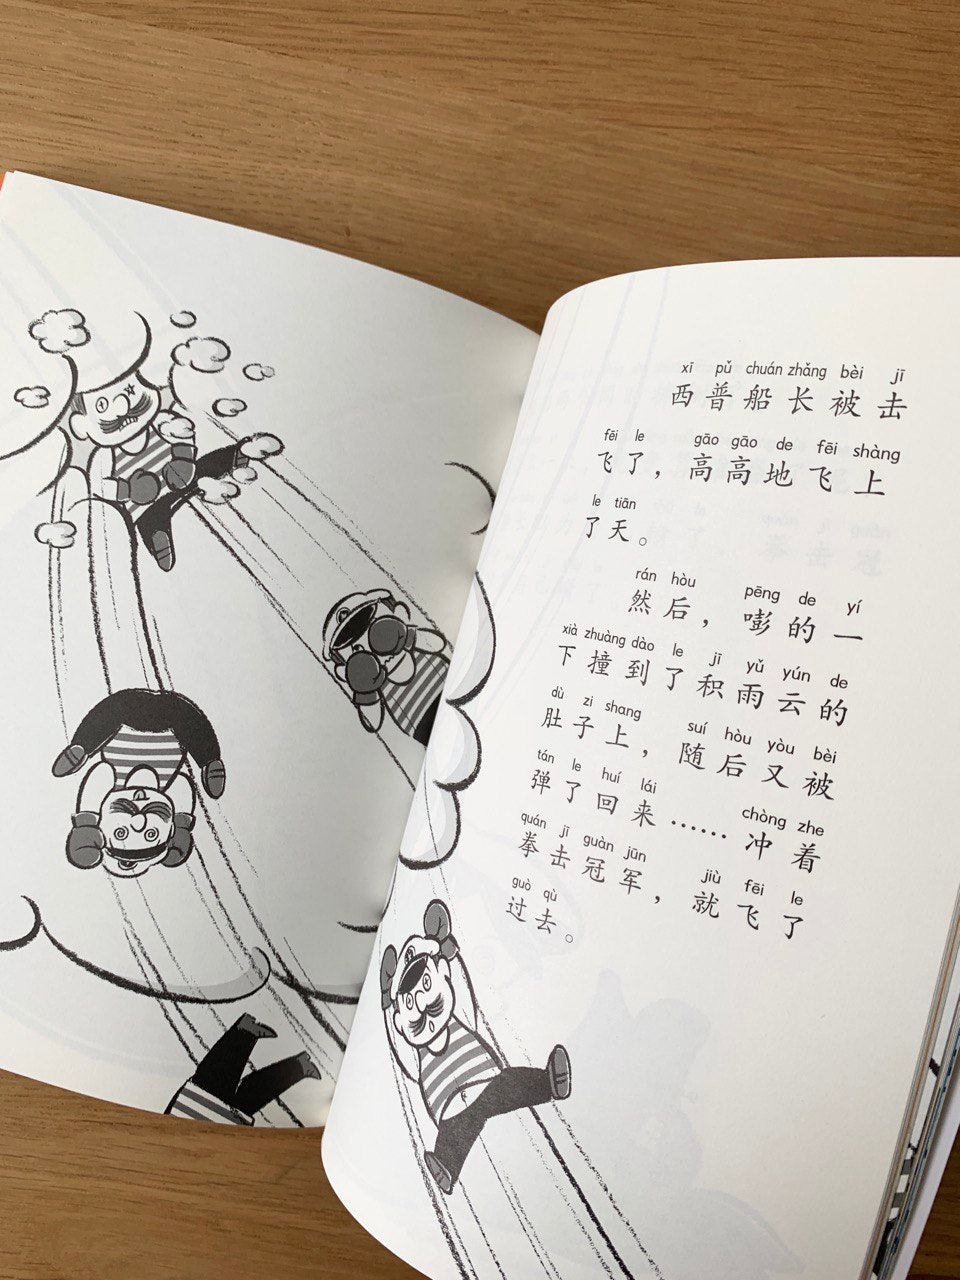 xī pǔ chuán zhǎng bèi jī
西普船长被击
fēi le gāo gāo de fēi shàng
飞了，高高地飞上
le tiān
了天。
rán hòu pēng de yí
然后，嘭的一
xià zhuàng dào le jī yǔ yún de
下撞到了积雨云的
dù zi shang suí hòu yòu bèi
肚子上，随后又被
tán le huí lái chòng zhe
弹了回来……冲着
quán jī guàn jūn jiù fēi le
拳击冠军，就飞了
guò qù
过去。